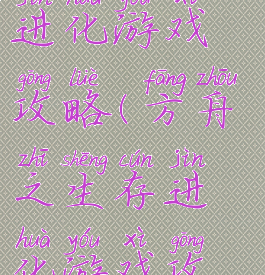 jìn huà yóu xì
进化游戏
gōng lüè fāng zhōu
攻略(方舟
zhī shēng cún jìn
之生存进
huà yóu xì gōng
化游戏攻